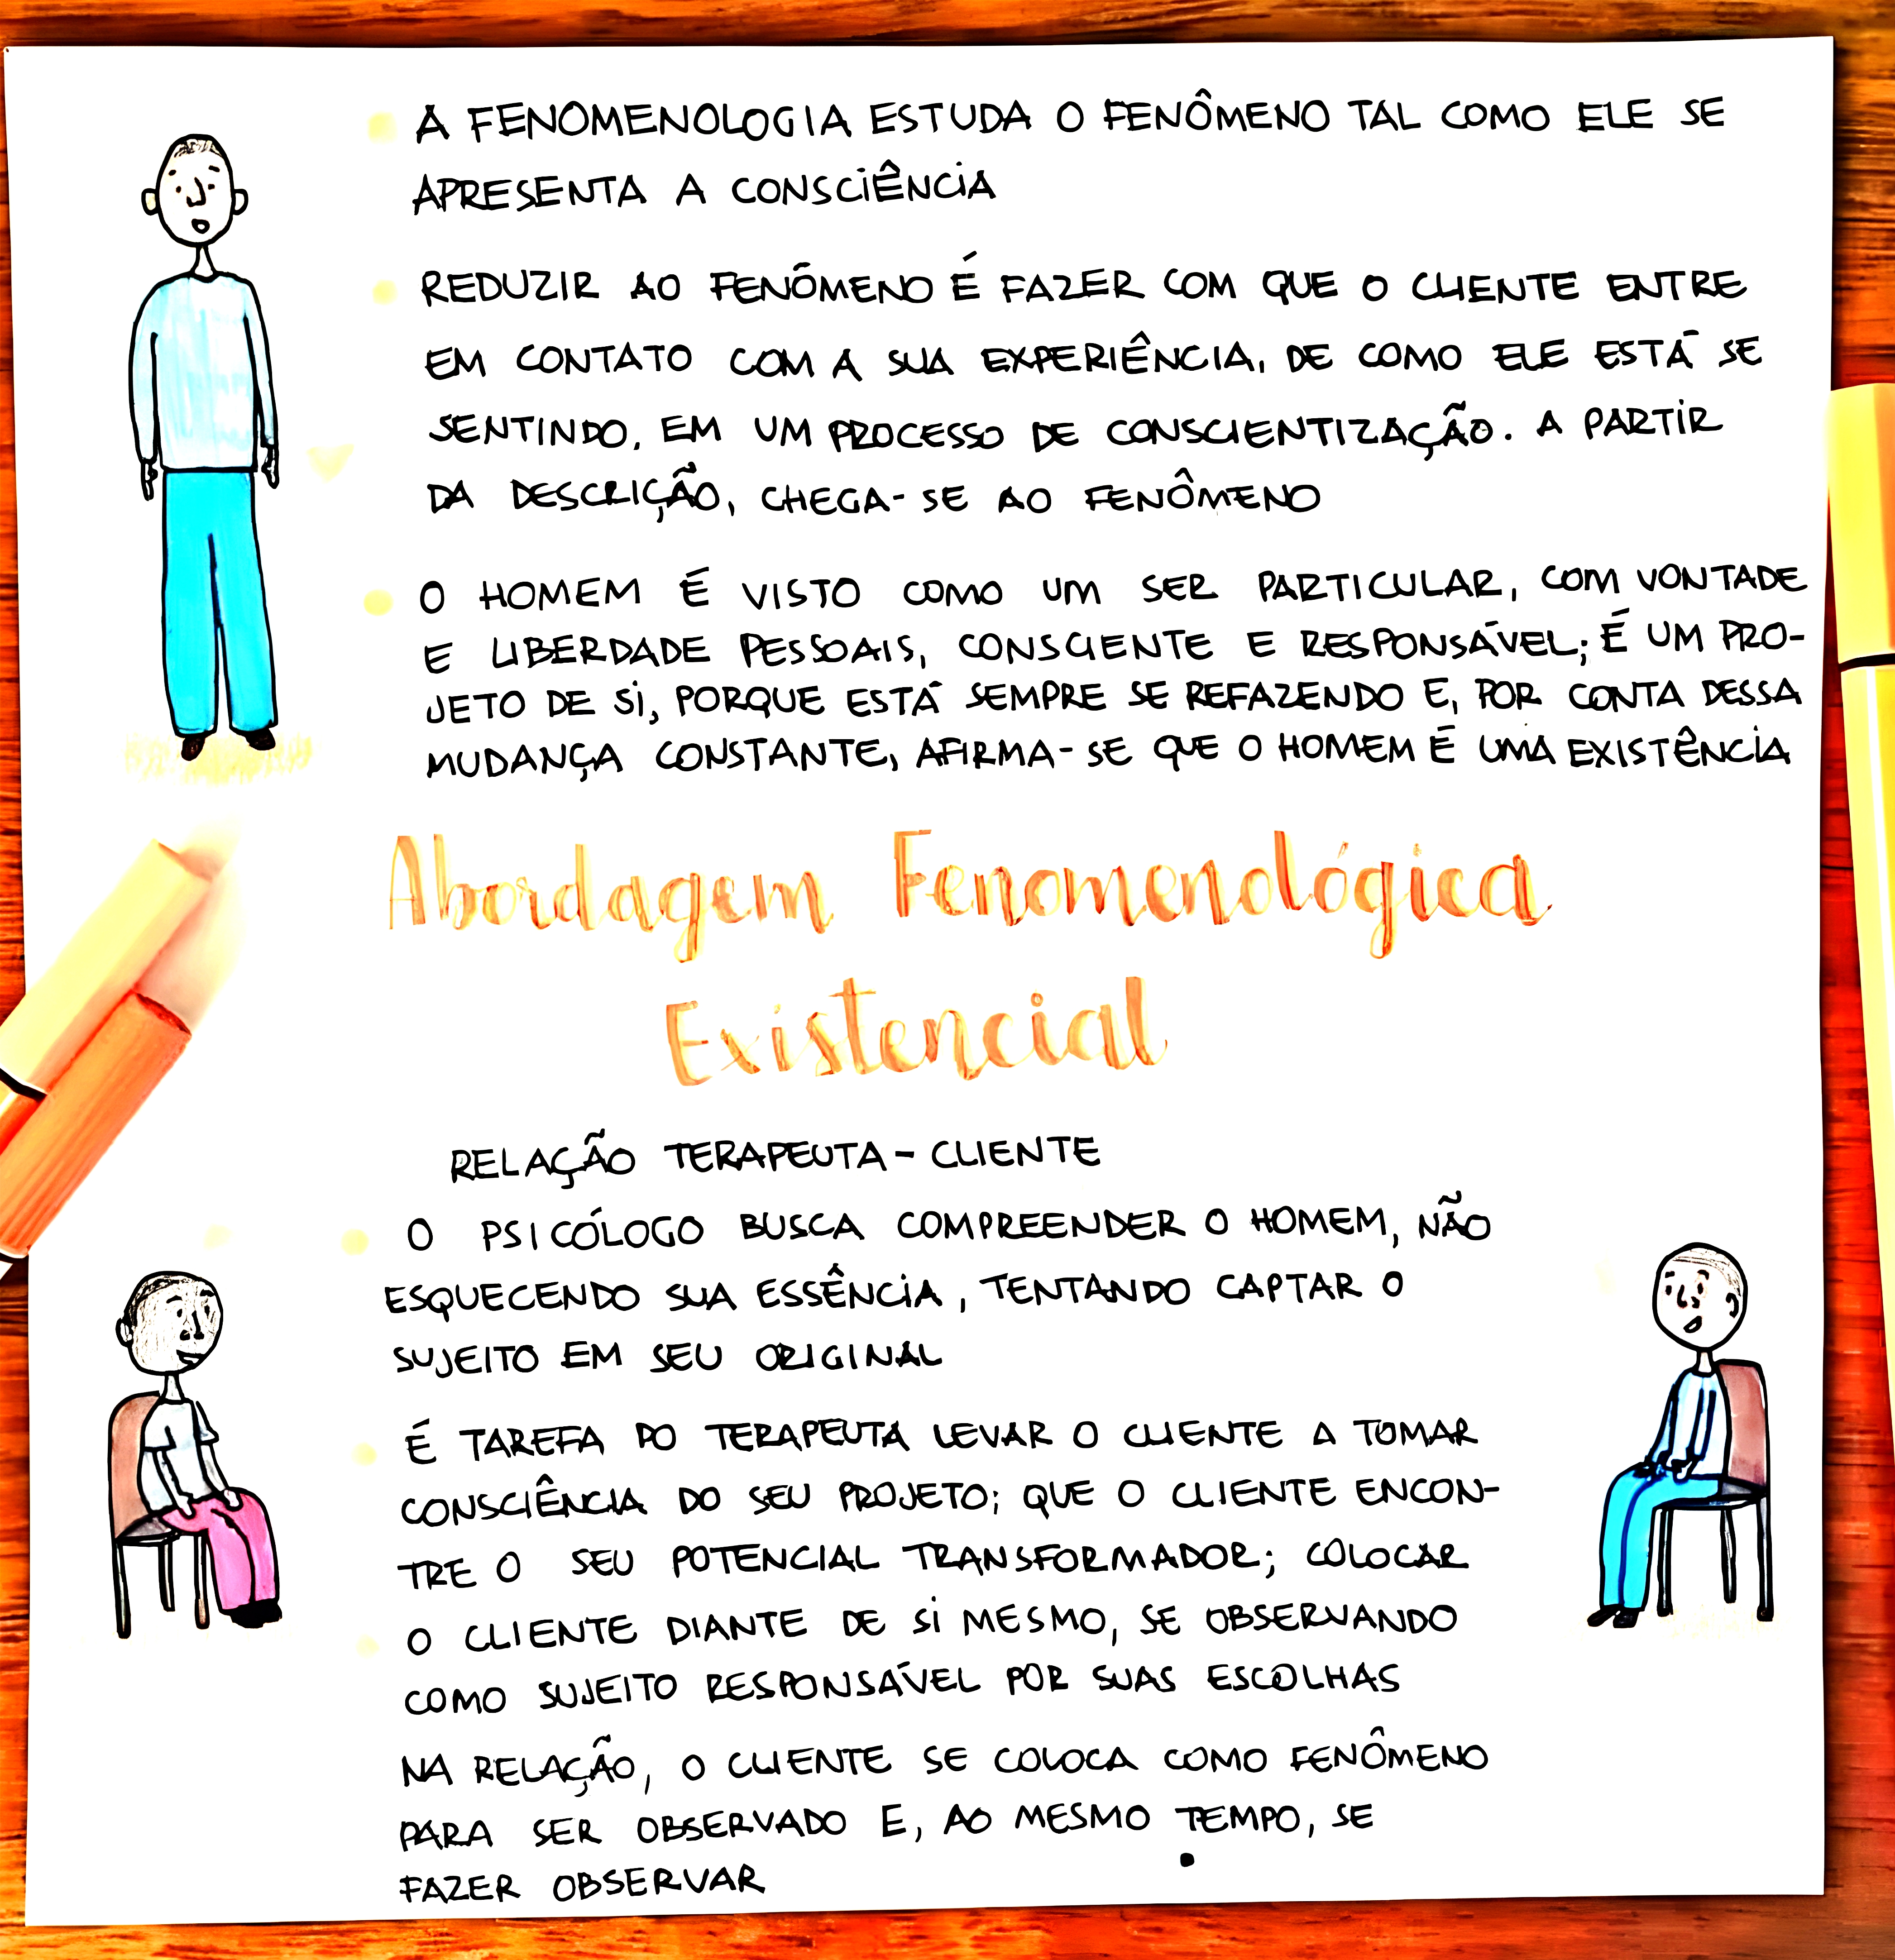 A FENOMENOLOGIA ESTUDA O FENÔMENO TAL COMO ELE SE
APRESENTA A CONSCIÊNCIA
REDUZIR AO FENÔMENO É FAZER COM QUE O CLIENTE ENTRE
EM CONTATO COM A SUA EXPERIÊNCIA, DE COMO ELE ESTÁ SE
SENTINDO, EM UM PROCESSO DE CONSCIENTIZAÇÃO. A PARTIR
DA DESCRIÇÃO, CHEGA-SE AO FENÔMENO
O HOMEM É VISTO COMO UM SER PARTICULAR, COM VONTADE
E LIBERDADE PESSOAIS, CONSCIENTE E RESPONSÁVEL; É UM PRO-
JETO DE SI, PORQUE ESTÁ SEMPRE SE REFAZENDO E, POR CONTA DESSA
MUDANÇA CONSTANTE, AFIRMA-SE QUE O HOMEM É UMA EXISTÊNCIA
Abordagem Fenomenológica
Existencial
RELAÇÃO TERAPEUTA-CLIENTE
O PSICÓLOGO BUSCA COMPREENDER O HOMEM, NÃO
ESQUECENDO SUA ESSÊNCIA, TENTANDO CAPTAR O
SUJEITO EM SEU ORIGINAL
É TAREFA DO TERAPEUTA LEVAR O CLIENTE A TOMAR
CONSCIÊNCIA DO SEU PROJETO; QUE O CLIENTE ENCON-
TRE O SEU POTENCIAL TRANSFORMADOR; COLOCAR
O CLIENTE DIANTE DE SI MESMO, SE OBSERVANDO
COMO SUJEITO RESPONSÁVEL POR SUAS ESCOLHAS
NA RELAÇÃO, O CLIENTE SE COLOCA COMO FENÔMENO
PARA SER OBSERVADO E, AO MESMO TEMPO, SE
FAZER OBSERVAR